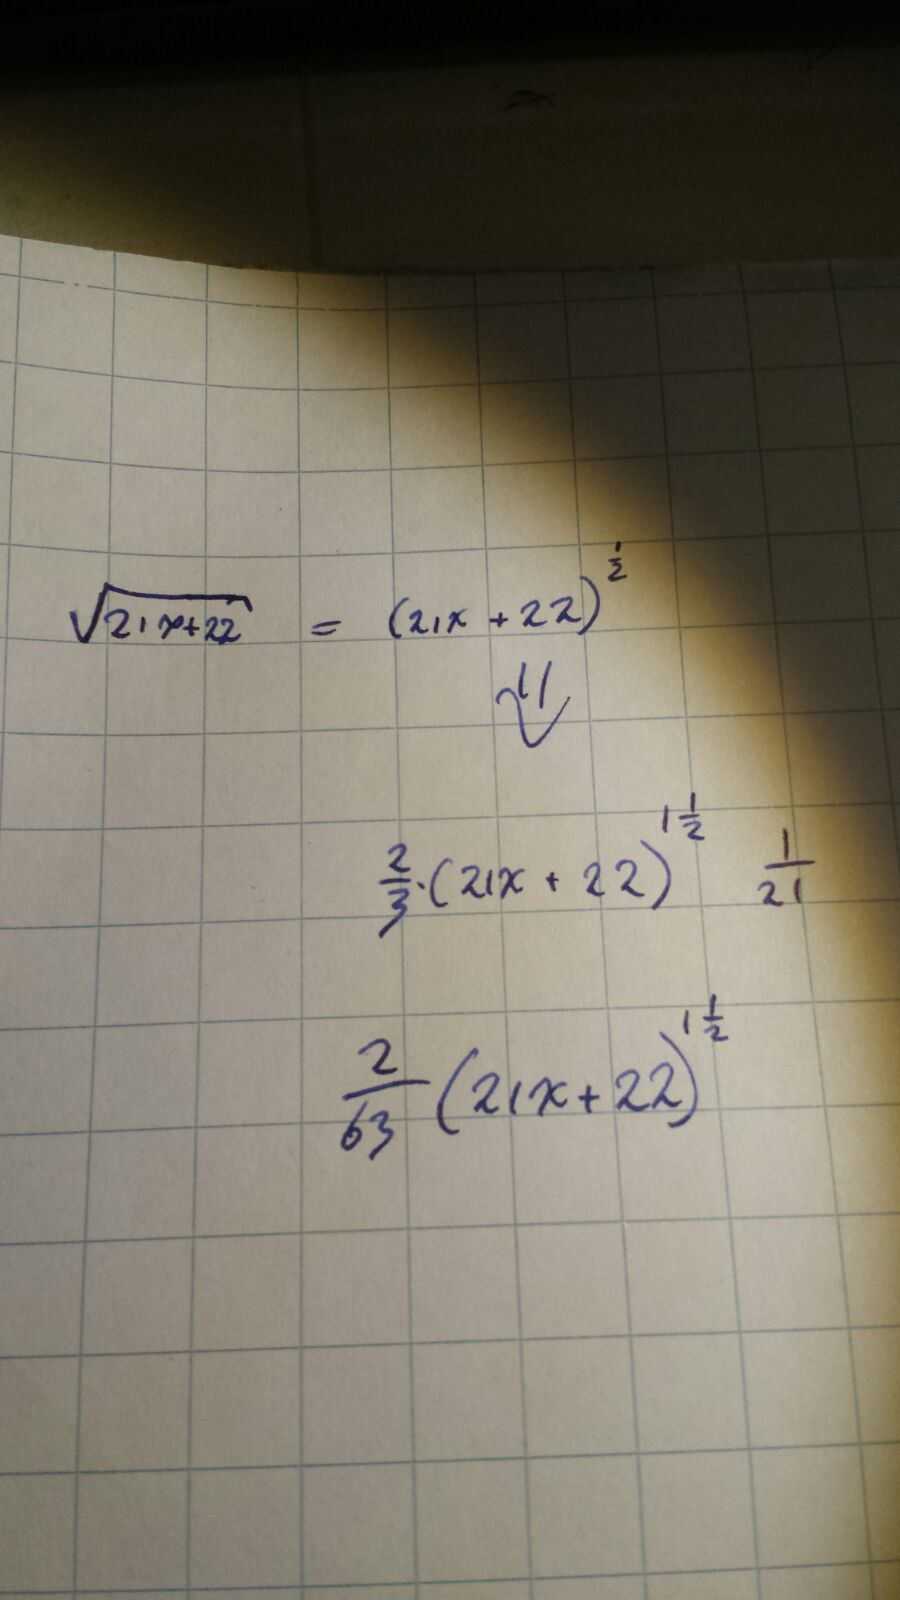 √(21x+22) = (21x + 22)^(1/2)
⇓
2/3 · (21x + 22)^(1 1/2) 1/21
2/63 (21x + 22)^(1 1/2)